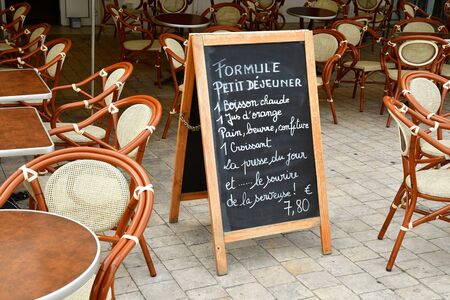 FORMULE
PETIT DÉJEUNER
1 Boisson chaude
1 Jus d'orange
Pain, beurre, confiture
1 Croissant
La presse du jour
et ...... le sourire
de la serveuse ! €
7,80